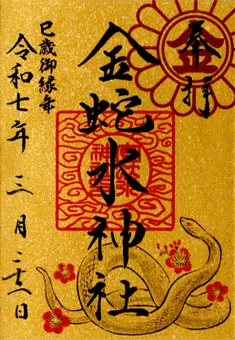 奉拝
金蛇水神社
巳歳御縁年
令和七年 三月 二十八日